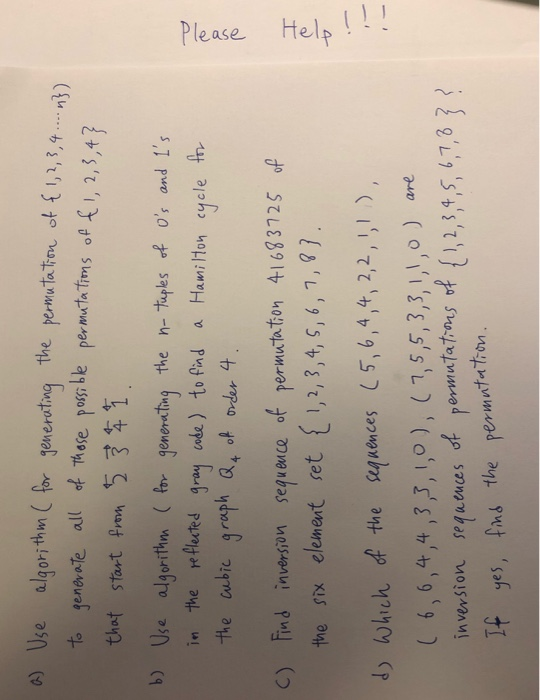 Please Help!!!
a) Use algorithm (for generating the permutation of {1,2,3,4.....n})
to generate all of those possible permutations of {1,2,3,4}
that start from 2⃖ 3⃗ 4⃖ 1⃖.
b) Use algorithm (for generating the n-tuples of 0's and 1's
in the reflected gray code) to find a Hamilton cycle for
the cubic graph Q₄ of order 4.
c) Find inversion sequence of permutation 41683725 of
the six element set {1,2,3,4,5,6,7,8}.
d) Which of the sequences (5,6,4,4,2,2,1,1),
(6,6,4,4,3,3,1,0), (7,5,5,3,3,1,1,0) are
inversion sequences of permutations of {1,2,3,4,5,6,7,8}?
If yes, find the permutation.